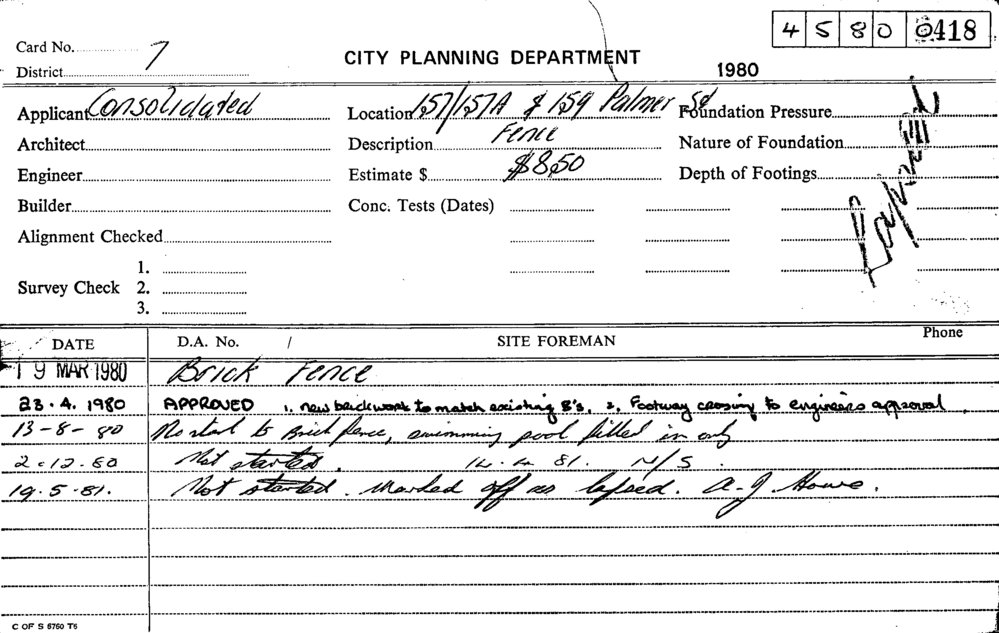 4 5 8 0 0418
Card No. 7
CITY PLANNING DEPARTMENT
District
1980
Applicant Consolidated
Location 157/157A & 159 Palmer St
Foundation Pressure
Architect
Description Fence
Nature of Foundation
Engineer
Estimate $ $850
Depth of Footings
Builder
Conc. Tests (Dates)
Lapsed
Alignment Checked
Survey Check 1.
2.
3.
DATE D.A. No. / SITE FOREMAN Phone
19 MAR 1980 Brick Fence
23.4.1980 APPROVED 1. new brickwork to match existing B's. 2. Footway crossing to engineers approval.
13-8-80 No start to Brick fence, swimming pool filled in only
2.12.80 Not started. 14.4.81. N/S.
19.5.81. Not started. Marked off as lapsed. A.J. Howe.
C OF S 6760 T5